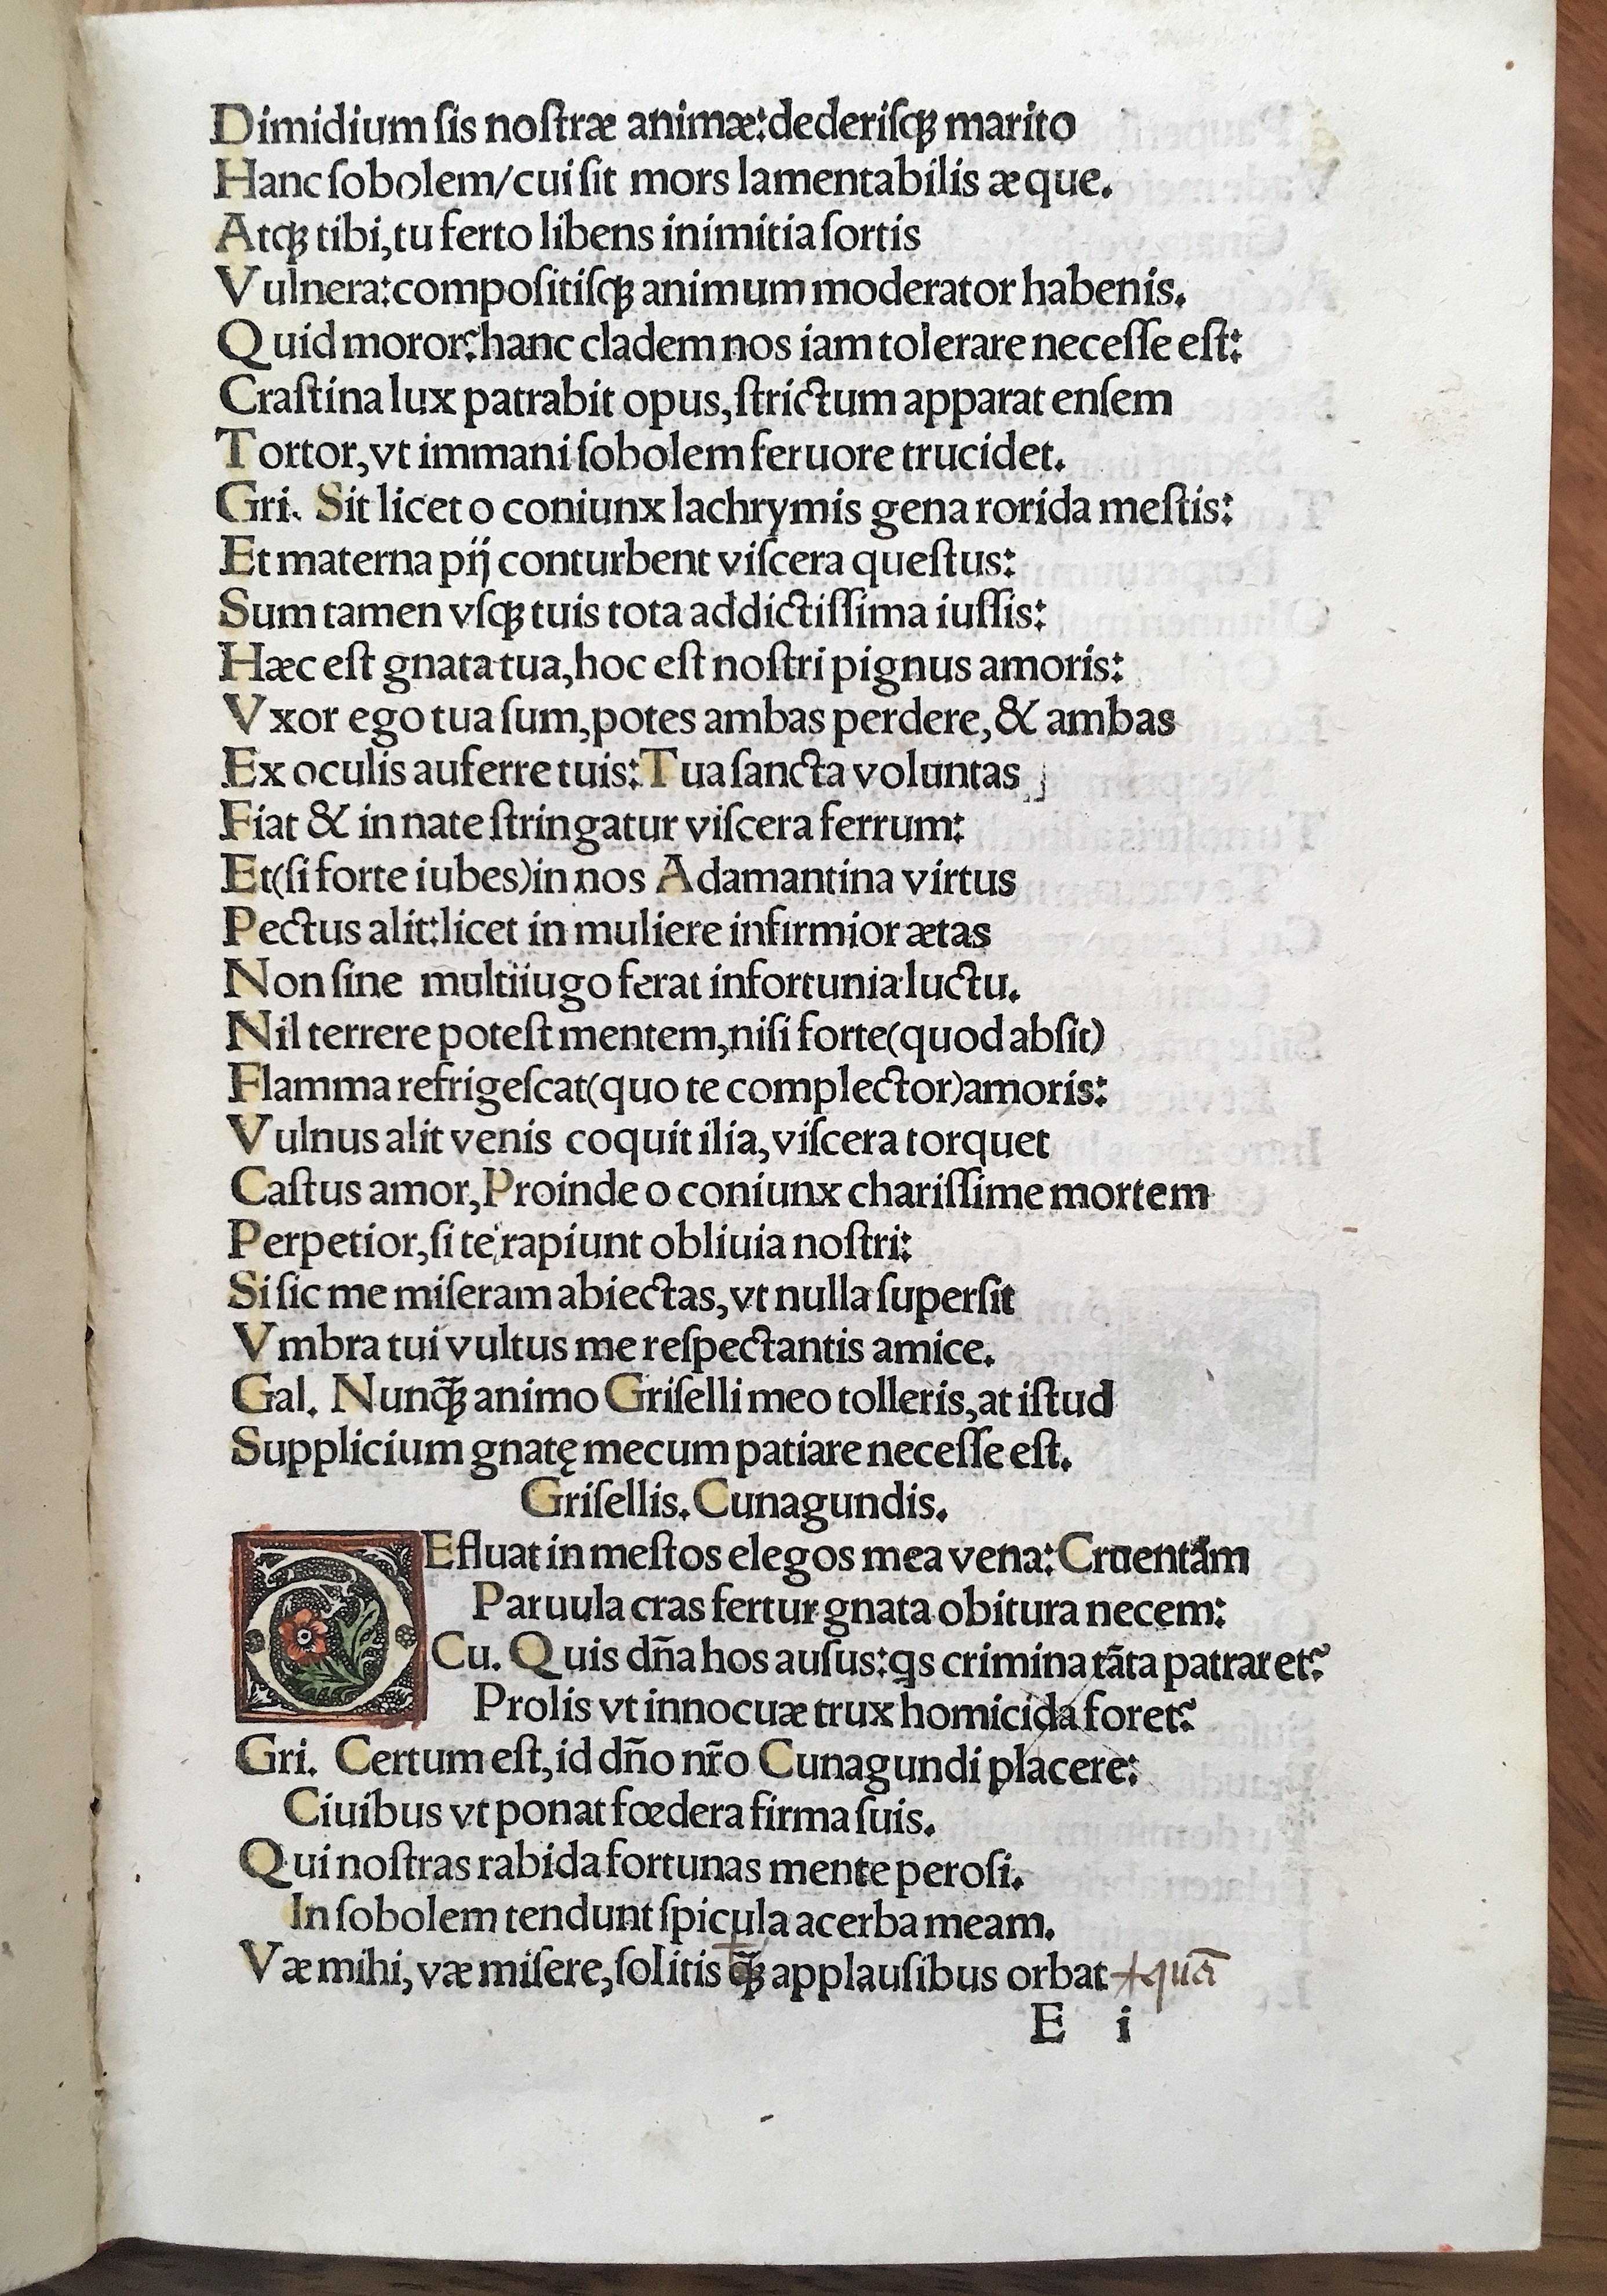 Dimidium ſis noſtræ animæ:dederiſqꝫ marito
Hanc ſobolem/cui ſit mors lamentabilis æque.
Atqꝫ tibi,tu ferto libens inimitia ſortis
Vulnera:compoſitiſqꝫ animum moderator habenis.
Quid moror?hanc cladem nos iam tolerare neceſſe eſt:
Craſtina lux patrabit opus,ſtrictum apparat enſem
Tortor,vt immani ſobolem feruore trucidet.
Gri. Sit licet o coniunx lachrymis gena rorida meſtis:
Et materna pij conturbent viſcera queſtus:
Sum tamen vſqꝫ tuis tota addictiſſima iuſſis:
Hæc eſt gnata tua,hoc eſt noſtri pignus amoris:
Vxor ego tua ſum,potes ambas perdere,& ambas
Ex oculis auferre tuis:Tua ſancta voluntas
Fiat & in nate ſtringatur viſcera ferrum:
Et(ſi forte iubes)in nos Adamantina virtus
Pectus alit:licet in muliere infirmior ætas
Non ſine multiiugo ferat infortunia luctu.
Nil terrere poteſt mentem,niſi forte(quod abſit)
Flamma refrigeſcat(quo te complector)amoris:
Vulnus alit venis coquit ilia,viſcera torquet
Caſtus amor,Proinde o coniunx chariſſime mortem
Perpetior,ſi te rapiunt obliuia noſtri:
Si ſic me miſeram abiectas,vt nulla ſuperſit
Vmbra tui vultus me reſpectantis amice.
Gal. Nunq̃ꝫ animo Griſelli meo tolleris,at iſtud
Supplicium gnatę mecum patiare neceſſe eſt.
Griſellis.Cunagundis.
DEfluat in meſtos elegos mea vena:Cruentam
Paruula cras fertur gnata obitura necem:
Cu. Quis dña hos auſus:qs crimina tãta patraret?
Prolis vt innocuæ trux homicida foret?
Gri. Certum eſt,id dño nr̃o Cunagundi placere:
Ciuibus vt ponat fœdera firma ſuis.
Qui noſtras rabida fortunas mente peroſi.
In ſobolem tendunt ſpicula acerba meam.
Væ mihi,væ miſere,ſolitis q̃ꝫ applauſibus orbat +quā
E i